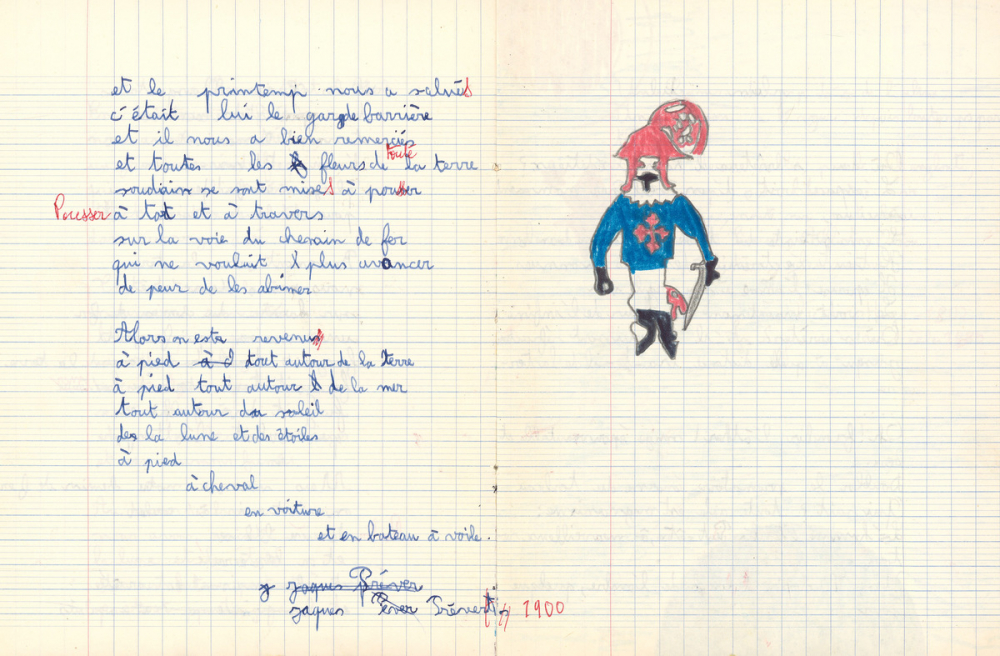 et le printemp nous a salués
c'était lui le gargde barrière
et il nous a bien remerciés
et toutes les fleurs de toute la terre
soudain se sont mises à pousser
Pousser à tot et à travers
sur la voie du chemain de fer
qui ne voulait plus avancer
de peur de les abimer
Alors on este revenus
à pied à d tout autour de la terre
à pied tout autour de la mer
tout autour du soleil
des la lune et des étoiles
à pied
à cheval
en voiture
et en bateau à voile.
y jaques Préver
jaques Préver Prévert 1900